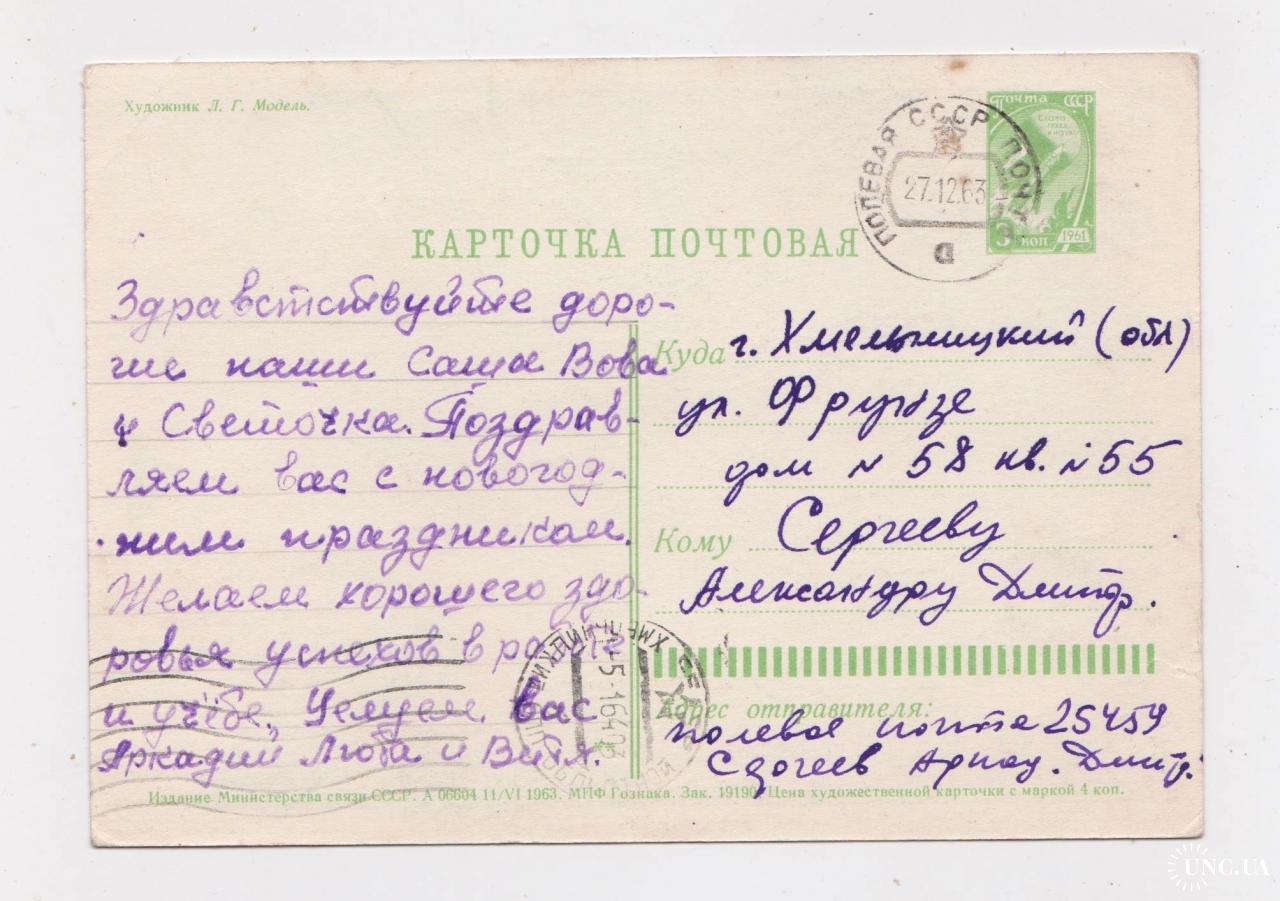 Художник Л. Г. Модель.
ПОЛЕВАЯ ПОЧТА СССР
27.12.63
D
Почта СССР
3 коп
1961
КАРТОЧКА ПОЧТОВАЯ
Здравствуйте доро-
гие наши Саша Вова
и Светочка. Поздрав-
ляем вас с новогод-
ним праздником.
Желаем хорошего здо-
ровья успехов в работе
и учёбе. Целуем вас
Аркадий Люба и Витя.
Куда г. Хмельницкий (обл)
ул. Фрунзе
дом № 58 кв. № 55
Кому Сергееву
Александру Дмитр.
ХМЕЛЬНИЦКИЙ
-5.1.64
Адрес отправителя:
полевая почта 25459
Аркад. Дмитр.
Издание Министерства связи СССР. А 06604 11/VI 1963. МПФ Гознака. Зак. 19190. Цена художественной карточки с маркой 4 коп.
UNC.UA